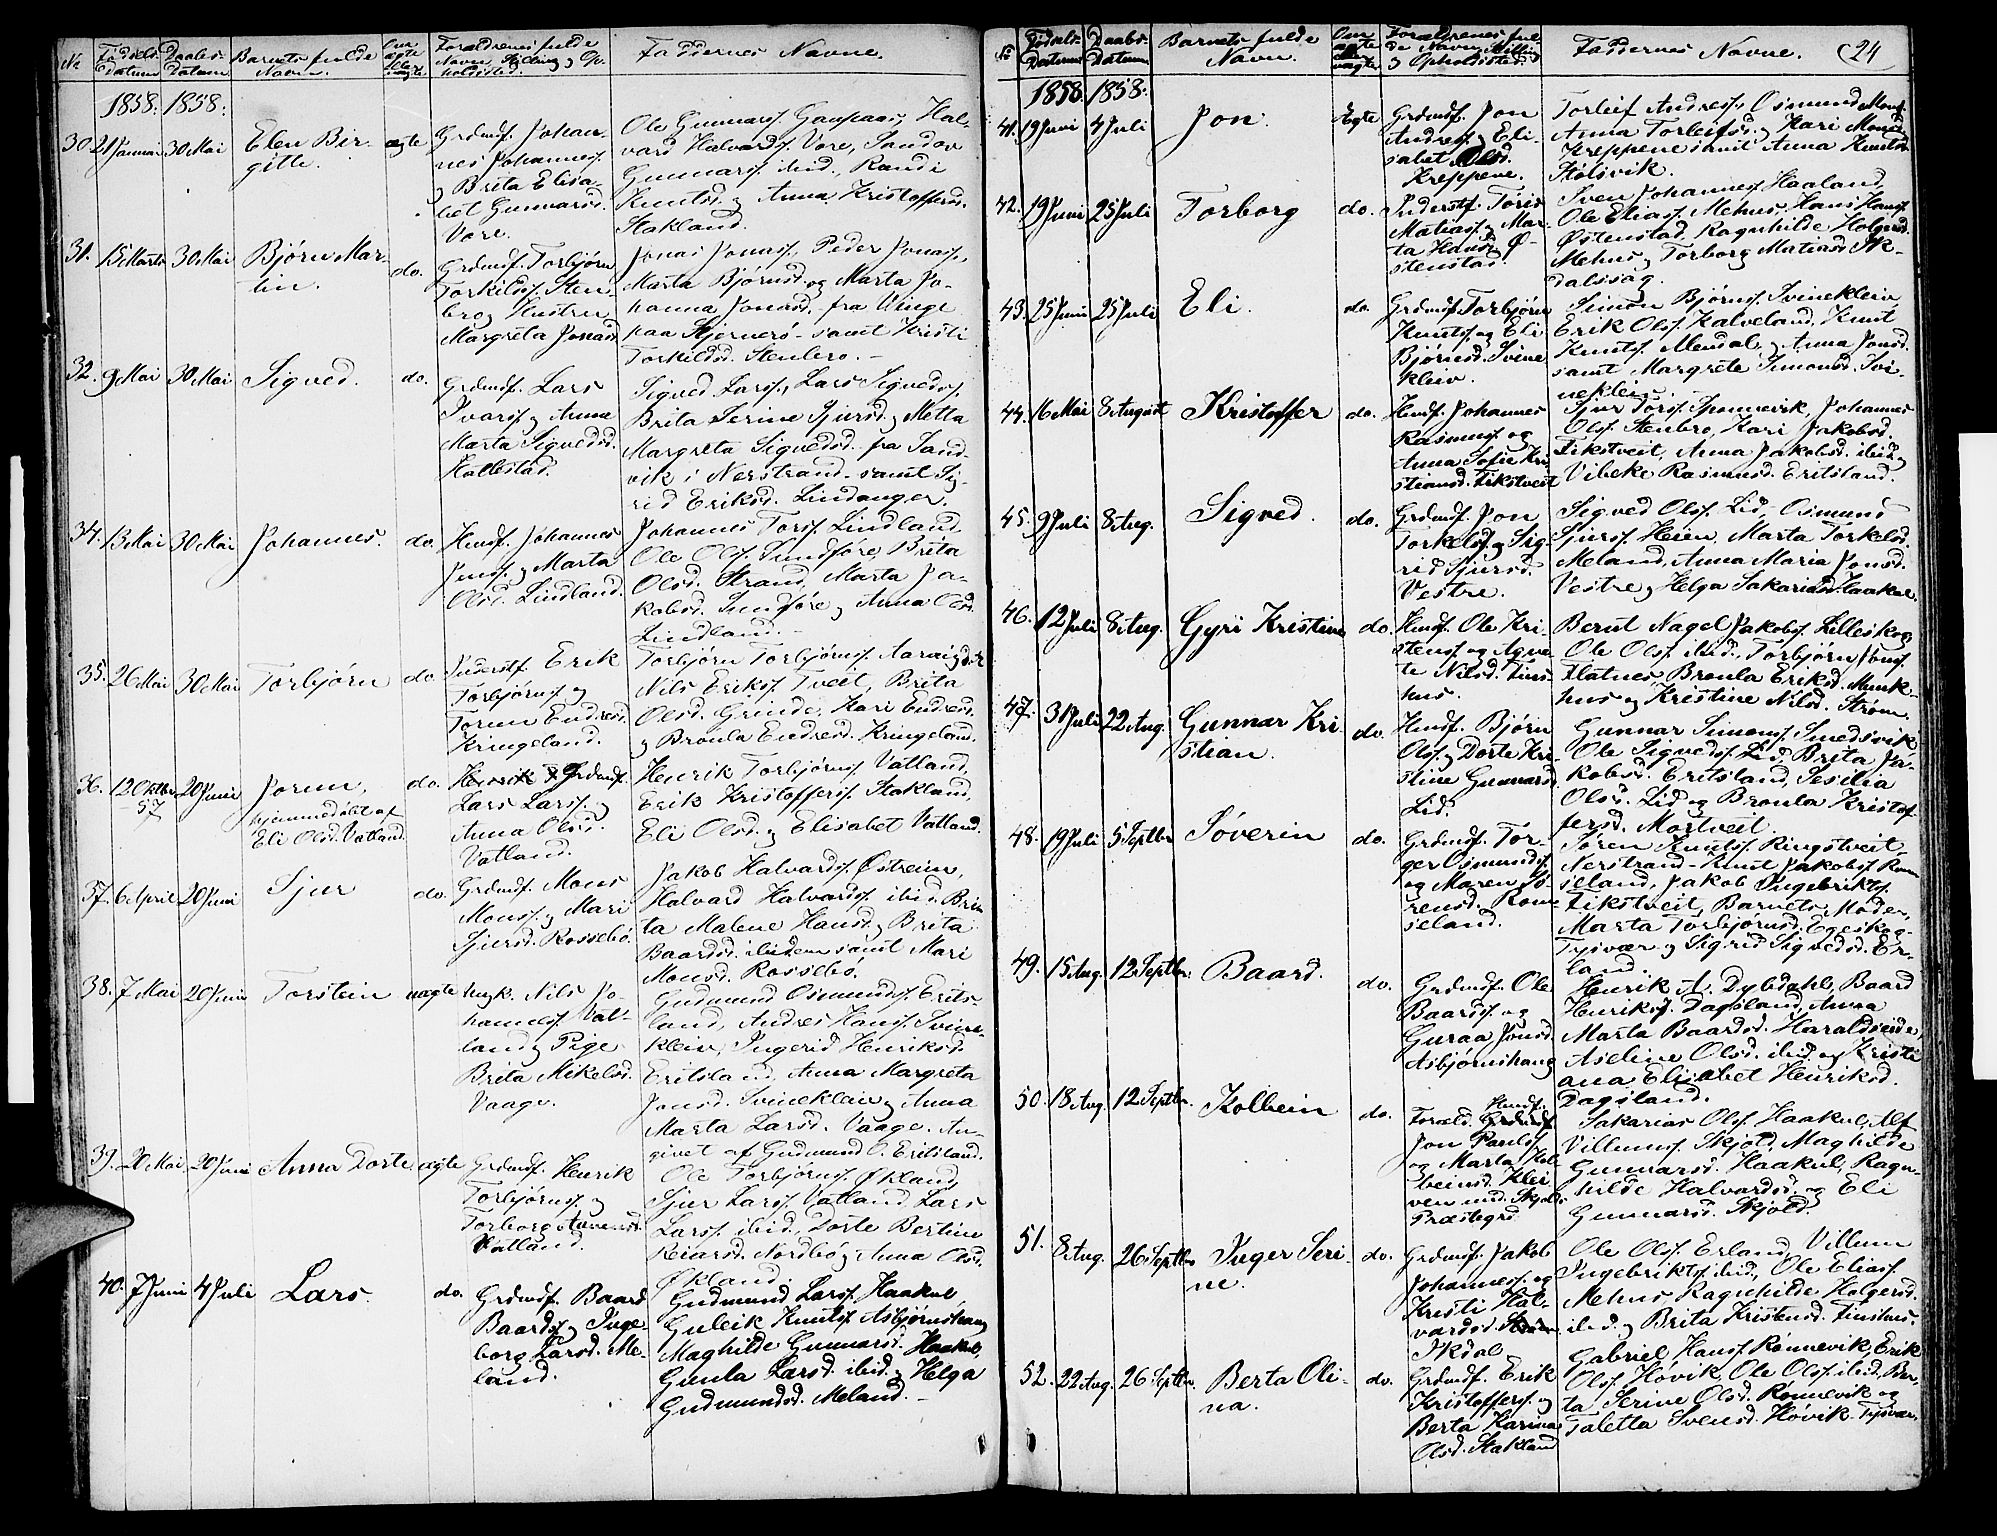 No
Fødsels-
Datum
Daabs-
Datum
Barnets fulde
Navn.
Om
ægte
eller
uægte
Forældrenes fulde
Navn, Stilling og Op-
holdssted.
Faddernes Navne.
1858. 1858.
30. 21 Januar 30 Mai Elen Bir-
gitte.
ægte
Grdmd. Johan-
nes Johanness.
og Brita Elisa-
bet Gunnarsd.
Vore.
Ole Gunnars. Gaupaas, Hal-
vard Halvards. Vore, Sandov
Gunnars. ibid., Randi
Knutsd. og Anna Kristoffersd.
Stakland.
31. 15 Marts 30 Mai Bjørn Mar-
tin.
do.
Grdmd. Torbjørn
Torkilds. Sten-
bro og Hustru
Margreta Jonasd.
Jonas Jonas., Peder Jonas.,
Marta Bjørnsd. og Marta Jo-
hanna Jonasd. fra Vinge
paa Stjernerø samt Kristi
Torkildsd. Stenbro. —
32. 9 Mai 30 Mai Sigved.
do.
Grdmd. Lars
Ivars. og Anna
Marta Sigvedsd.
Hallestad.
Sigved Lars., Lars Sigveds.,
Brita Serine Sjursd. og Metta
Margreta Sigvedsd. fra Sand-
vik i Nerstrand samt Sig-
rid Eriksd. Lindanger.
34. 13 Mai 30 Mai Johannes.
do.
Husmd. Johannes
Jens. og Marta
Olsd. Lindland.
Johannes Tors. Lindland,
Ole Ols. Sundføre, Brita
Olsd. Strand, Marta Ja-
kobsd. Sundføre og Anna Olsd.
Lindland. —
35. 26 Mai 30 Mai Torbjørn
do
Inderstf. Erik
Torbjørns. og
Torun Endresd.
Kringeland.
Torbjørn Torbjørns. Aarvig,
Nils Eriks. Tveit, Brita
Olsd. Grinde, Kari Endresd.
og Bronla Endresd. Kringeland.
36. 12 Oktbr
57 20 Juni Jorun,
hjemmedøbt af
Eli Olsd. Vatland.
do.
Grdmd.
Lars Lars. og
Anna Olsd.
Vatland.
Henrik Torbjørns. Vatland,
Erik Kristoffers. Stakland,
Eli Olsd. og Elisabet Vatland.
37. 6 April 20 Juni Sjur
do.
Grdmd. Mons
Mons. og Mari
Sjursd. Rossebø.
Jakob Halvards. Østreim,
Halvard Halvards. ibid., Bri-
ta Malene Hansd. og Brita
Baardsd. ibidem samt Mari
Monsd. Rossebø.
38. 7 Mai 20 Juni Torstein uægte
Ungk. Nils Jo-
hannes. Vat-
land og Pige
Brita Mikelsd.
Vaage.
Gudmund Osmunds. Erits-
land, Andres Hans. Svine-
kleiv, Ingerid Henriksd.
Eritsland, Anna Margreta
Jonsd. Svinekleiv og Anna
Marta Larsd. Vaage. An-
givet af Gudmund O. Eritsland.
39. 20 Mai 20 Juni Anna Dorte ægte
Grdmd. Henrik
Torbjørns. og
Torborg
Vatland.
Ole Torbjørns. Økland,
Sjur Lars. Vatland, Lars
Lars. ibid., Dorte Bertine
Reiarsd. Nordbø og Anna Olsd.
Økland.
40. 7 Juni 4 Juli Lars.
do.
Grdmd. Baard
Baards. og Inge-
borg Larsd. Me-
land.
Gudmund Lars. Haakul,
Guleik Knuts. Asbjørnshaug
Maghilde Gunnarsd. Haakul,
Gunla Larsd. ibid. og Helga
Gudmundsd. Meland. —
No
Fødsels-
Datum
Daabs-
Datum
Barnets fulde
Navn.
Om
ægte
eller
uægte
Forældrenes ful-
de Navn, Stilling
og Opholdssted.
Faddernes Navne.
24
1858. 1858.
41. 19 Juni 4 Juli Jon.
Ægte
Grdmd. Jon
Andres. og Eli-
sabet Olsd.
Kreppene.
Torleif Andres., Osmund Mons.
Anna Torleifsd. og Kari Monsd.
Kreppene samt Anna Knutsd.
Stølsvik.
42. 19 Juni 25 Juli Torborg
do.
Inderstf. Toris
Matias. og Mar-
ta Hansd. Ø-
stenstad.
Sven Johannes. Haaland,
Ole Elias. Mehus, Hans Hans.
Østenstad, Ragnhilde Holgersd.
Mehus og Torborg Matiasd. Sk-
dalssag.
43. 25 Juni 25 Juli Eli.
do.
Grdmd. Torbjørn
Knuts. og Eli
Bjørnsd. Svine
kleiv.
Simon Bjørns. Svinekleiv,
Erik Ols. Kalveland, Knut
Knuts. Alendal og Anna Jonsd.
samt Margrete Simonsd. Svi-
nekleiv.
44. 16 Mai 8 August Kristoffer
do.
Husmd. Johannes
Rasmus. og
Anna Sofie Kri
stiansd. Tikstveit
Sjur Tors. Spannevik, Johannes
Ols. Stenbro, Kari Jakobsd.
Tikstveit, Anna Jakobsd. ibid. og
Vibeke Rasmusd. Eritsland.
45. 9 Juli 8 Aug. Sigved.
do.
Grdmd. Jon
Torkels. og Sig-
rid Sjursd.
Vestre.
Sigved Ols. Lid, Osmund
Sjurs. Heien, Marta Torkelsd.
Meland, Anna Maria Jonsd.
Vestre og Helga Sakariasd. Haakul.
46. 12 Juli 8 Aug. Gyri Kristine
do.
Husmd. Ole Kri-
stens. og Agne-
te Nilsd. Tins-
hus.
Bernt Nagel Jakobs. Lilleskog,
Ole Ols. ibid., Torbjørn Jons.
Flatnes, Bronla Eriksd. Munk-
hus og Kristine Nilsd. Strøm.
47. 31 Juli 22 Aug. Gunnar Kri
stian.
do.
Husmd. Bjørn
Ols. og Dorte Kri-
stine Gunnarsd.
Lid.
Gunnar Simons. Smedsvik,
Ole Sigveds. Lid, Brita Ja-
kobsd. Eritsland, Sesilia
Olsd. Lid og Bronla Kristof-
fersd. Mortveit.
48. 19 Juli 5 Septbr Søverin
do.
Grdmd. Tor-
ger Osmunds.
og Maren Sø-
rensd. Rom-
seland.
Søren Knuts. Ringstveit
Nerstrand, Knut Jakobs. Rom-
seland, Jakob Ingebrikts.
Tikstveit, Barnets Moder,
Marta Torbjørnsd. Egeskog
Tysvær og Sigrid Sigvedsd. Er-
land.
49. 15 Aug. 12 Septbr. Baard.
do.
Grdmd. Ole
Baards. og
Guraa Jonsd.
Asbjørnshaug
Henrik A. Dybdahl, Baard
Henriks. Dagsland, Anna
Marta Baardsd. Haraldseide,
Aseline Olsd. ibid. og Kristi
ana Elisabet Henriksd.
Dagsland.
50. 18 Aug. 12 Septbr. Kolbein
do.
Foræld. Husmd.
Jon Pauls.
og Marta Kol-
beinsd. Klei-
ven und. Skjolds
Præstegrd.
Sakarias Ols. Haakul, Alf
Villums. Skjold, Maghilde
Gunnarsd. Haakul, Ragn-
hilde Halvardsd. og Eli
Gunnarsd. Skjold.
51. 8 Aug. 26 Septbr Inger Seri-
ne.
do.
Grdmd. Jakob
Johannes. og
Kristi Hal-
vardsd.
Skdal
Ole Ols. Erland, Villum
Ingebrikts. ibid., Ole Elias.
Mehus, Ragnhilde Holgersd.
ibid. og Brita Kristensd. Tinshus.
52. 22 Aug. 26 Septbr. Berta Oli-
na.
do.
Grdmd. Erik
Kristoffers. og
Berta Karina
Olsd. Stakland
Gabriel Hans. Rønnevik, Erik
Ols. Høvik, Ole Ols. ibid., Ber-
ta Serine Olsd. Rønnevik og
Taletta Svensd. Høvik Tysvær.